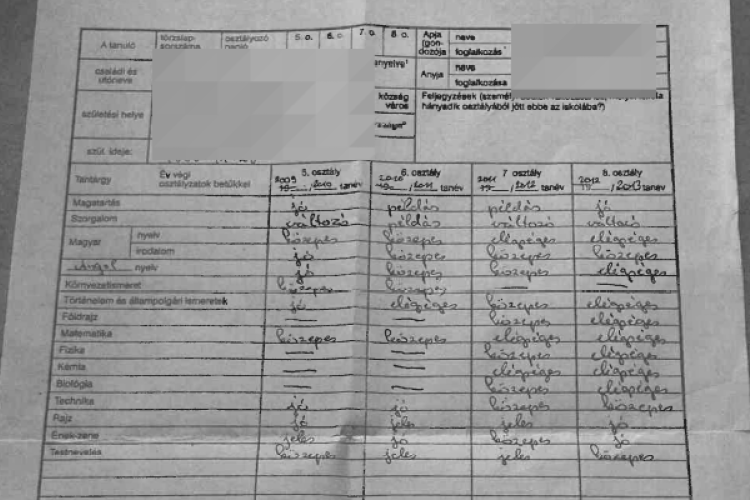 A tanuló törzslap- sorszáma osztályozó napló 5. o. 6. o. 7. o. 8. o. Apja (gon- dozója neve
foglalkozás
családi és utóneve anyelve¹ Anyja neve
foglalkozása
születési helye község város Feljegyzések (személyi
hányadik osztályából jött ebbe az iskolába?)
szül. ideje:
Tantárgy Év végi osztályzatok betűkkel 5. osztály 2009/2010 tanév 6. osztály 2010/2011 tanév 7 osztály 2011/2012 tanév 8. osztály 2012/2013 tanév
Magatartás jó példás példás jó
Szorgalom változó példás változó változó
Magyar nyelv közepes közepes elégséges elégséges
irodalom jó közepes közepes közepes
Angol nyelv jó közepes elégséges elégséges
Környezetismeret közepes közepes — —
Történelem és állampolgári ismeretek jó elégséges közepes elégséges
Földrajz — — közepes elégséges
Matematika közepes közepes elégséges elégséges
Fizika — — közepes elégséges
Kémia — — elégséges elégséges
Biológia — — közepes elégséges
Technika jó jó közepes közepes
Rajz jó jeles jeles jó
Ének-zene jeles jó közepes jó
Testnevelés közepes jeles jeles közepes